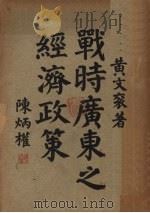 黃文袞著
戰時廣東之
經濟政策
陳炳權